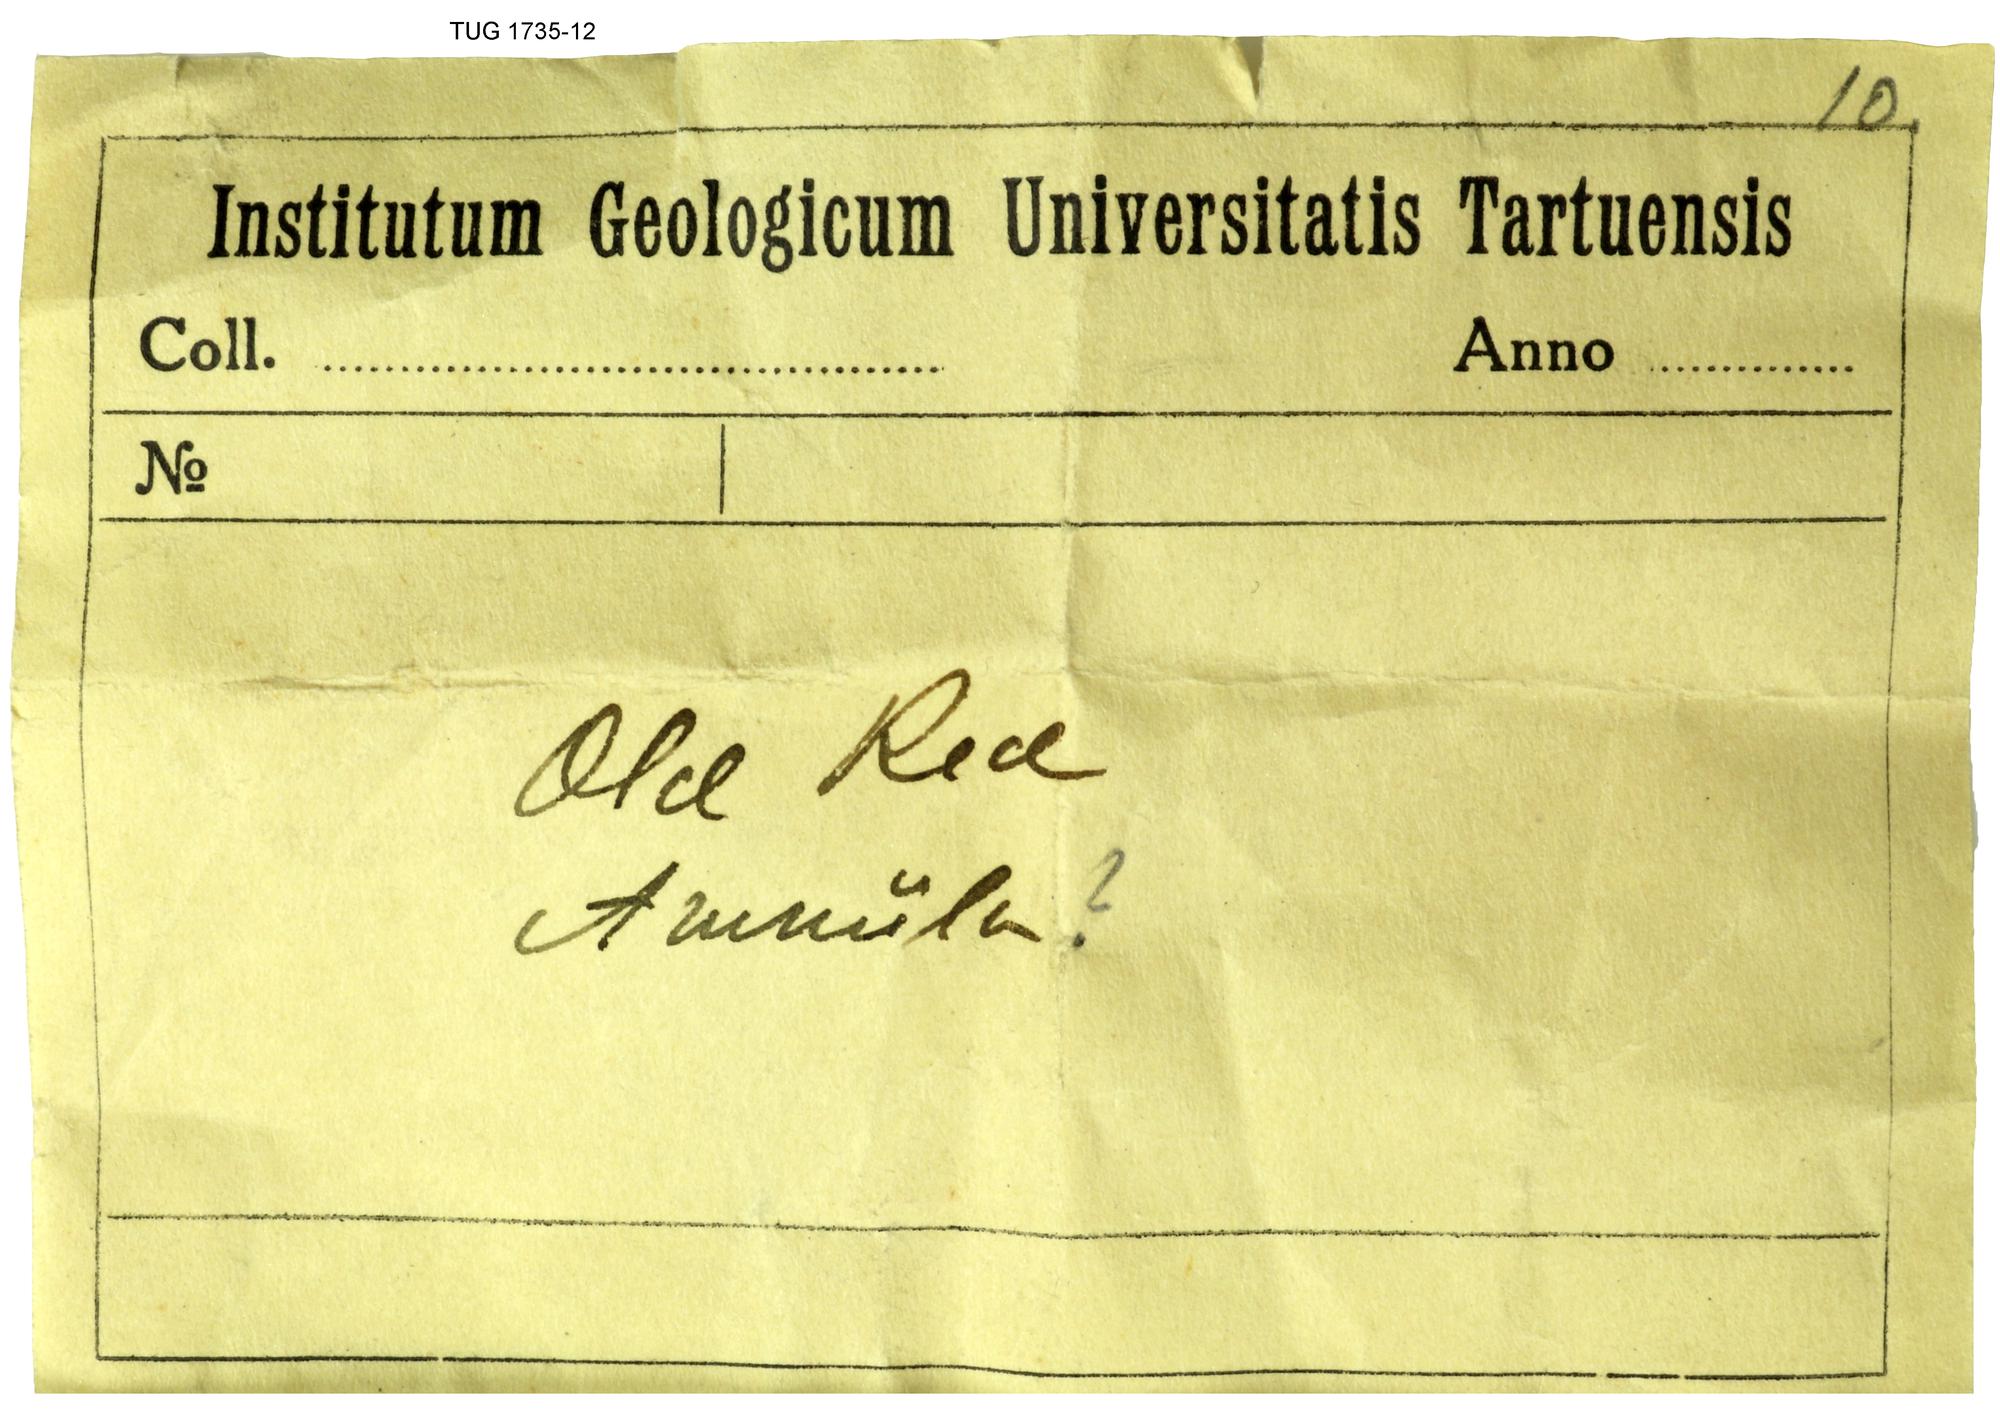 TUG 1735-12
10.
Institutum Geologicum Universitatis Tartuensis
Coll. ........................................ Anno ..............
№
Old Red
?